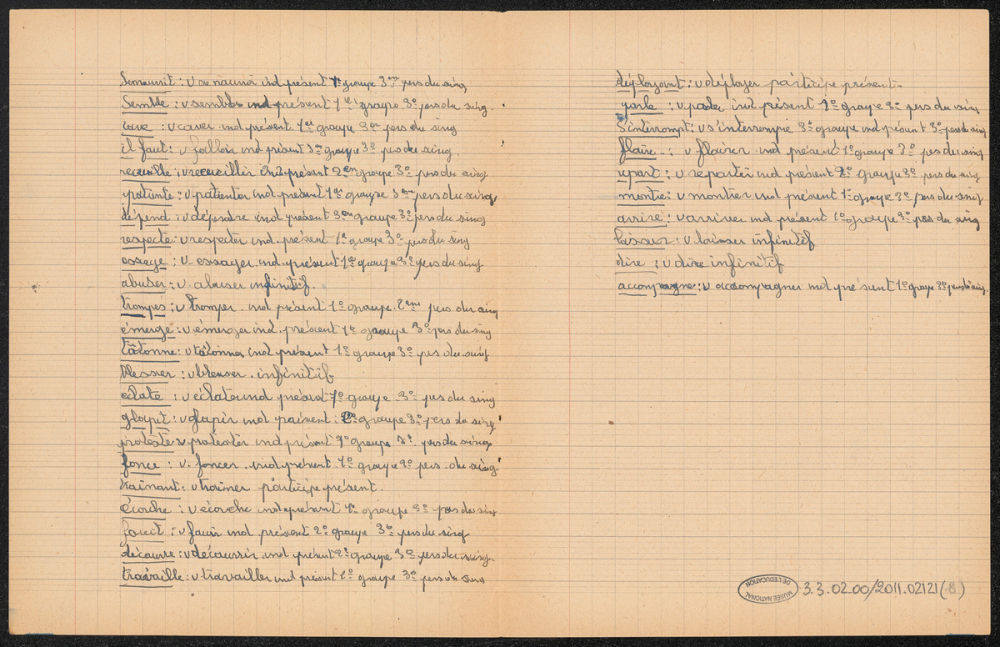 v se ind présent groupe 3 pers du sing
Semble : v sembler ind présent 1er groupe 3e pers du sing.
v ind présent 1er groupe pers du sing
il faut : v falloir ind présent 3e groupe 3e pers du sing.
v recueillir ind présent 2em groupe 3e pers du sing
patiente : v patienter ind présent 1er groupe 3em pers du sing
dépend : v dépendre ind présent 3em groupe 3e pers du sing
respecte : v respecter ind présent 1e groupe 3e pers du sing
essaye : v essayer ind présent 1er groupe 3e pers du sing
abuser : v. abuser infinitif.
trompes : v tromper. ind présent 1e groupe. 2ème pers du sing
émerge : v émerger ind. présent 1e groupe 3e pers du sing
tâtonne : v tâtonner ind présent 1e groupe 3e pers du sing
blesser : v blesser. infinitif
éclate : v éclater ind présent 1e groupe 3e pers du sing
glapit : v glapir ind présent. 2e groupe 3e pers du sing
proteste v protester ind présent 1e groupe pers du sing
fonce : v. foncer. ind présent. 1e groupe 3e pers. du sing
trainant : v trainer participe présent.
écorche : v écorcher ind présent 1e groupe 3e pers du sing
v ind présent 2e groupe 3e pers du sing
ind présent groupe 3e pers du sing.
travaille : v travailler ind présent 1e groupe 3e pers du sing
déployant : v déployer participe présent.
parle : v parler ind présent 1e groupe 3e pers du sing
S'interrompt : v s'interrompre 3e groupe ind présent 3e pers du sing
flaire : v flairer ind présent 1e groupe 3e pers du sing
repart : v repartir ind présent groupe 3e pers du sing
v ind présent 1e groupe 3e pers du sing
arrive : v arriver ind présent 1e groupe 3e pers du sing
laisser : v laisser infinitif
dire : v dire infinitif
accompagne : v accompagner ind présent 1e groupe 3e pers du sing.
MUSÉE NATIONAL DE L'ÉDUCATION 3.3.02.00/2011.02121(8)